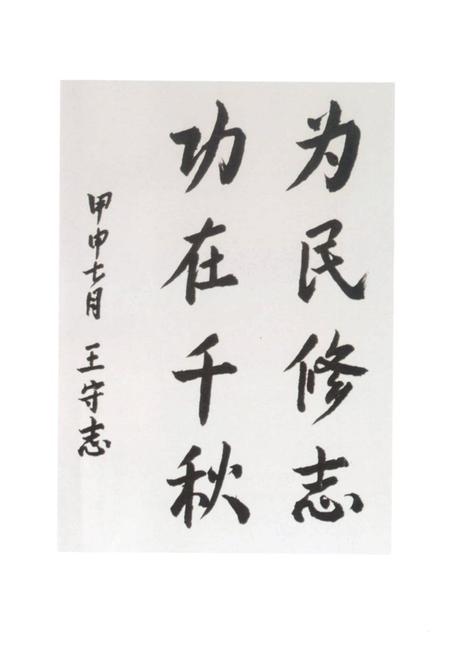 为民修志
功在千秋
甲申七月 王守志